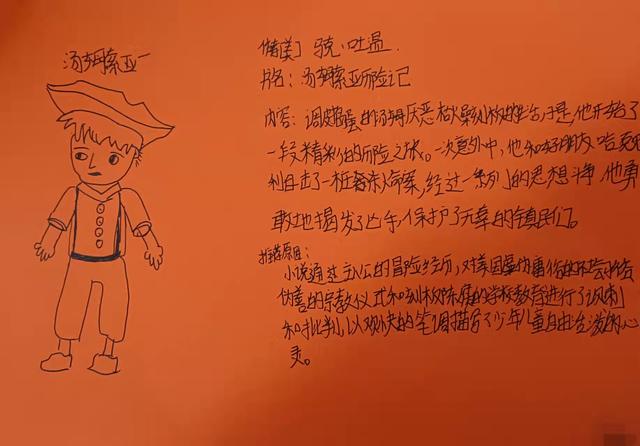 汤姆索亚
作者[美] 马克·吐温
书名：汤姆索亚历险记
内容：调皮捣蛋的汤姆厌恶枯燥刻板的生活，于是，他开始了
一段精彩的历险之旅。一次意外中，他和好朋友哈克
利目击了一桩杀人命案，经过一系列的思想斗争，他勇
敢地揭发了凶手，保护了无辜的镇民们。
推荐原因：
小说通过主人公的冒险经历，对美国虚伪庸俗的社会习俗
伪善的宗教仪式和刻板陈腐的学校教育进行了讽刺
和批判，以欢快的笔调描写了少年儿童自由活泼的心
灵。